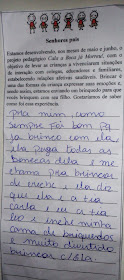 Senhores pais
Estamos desenvolvendo, nos meses de maio e junho, o
projeto pedagógico Cada a Boca já Morreu!, com o
objetivo de levar as crianças a vivenciarem situações
de interação com colegas, educadores e familiares,
estabelecendo relações afetivas saudáveis. Brincar é
uma das formas da criança expressar suas emoções e,
ainda mais, estamos enviando um brinquedo para que
vocês brinquem com seu filho. Gostaríamos de saber
como foi essa experiência.
Pra mim como
sempre foi bom eu
já brinco com ela
ela pega todas as
bonecas dela e me
chama pra brincar
de creche ela diz
que ela é a tia
Carla e eu a tia
Leo e minha
cama de brinquedos
é muito divertido
brincar c/ ela.